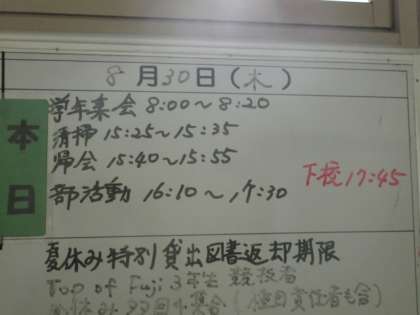 8月30日(木)
本日
学年集会 8:00～8:20
清掃 15:25～15:35
帰会 15:40～15:55
下校 17:45
部活動 16:10～17:30
夏休み特別貸出図書返却期限
Top of Fuji 3年生 競技者